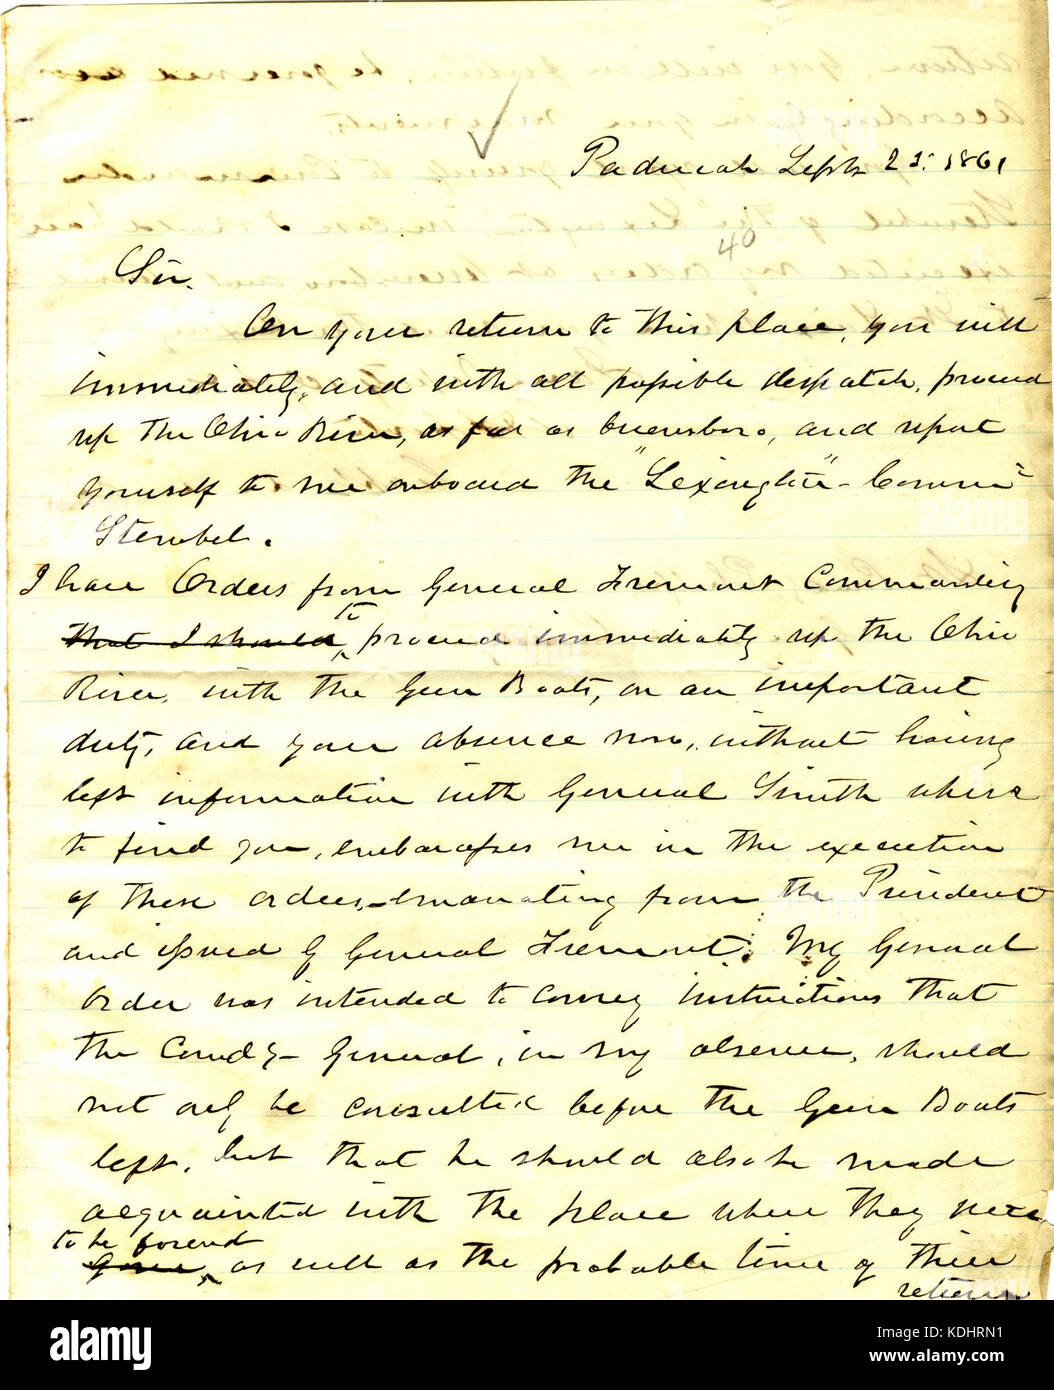 Paducah Septr 23: 1861
40
Sir.
On your return to this place, you will
immediately, and with all possible despatch, proceed
up the Ohio River, as far as Owensboro, and report
yourself to me onboard the "Lexington" - Comm
Stembel.
I have Orders from General Fremont Commanding
to
that I should proceed immediately up the Ohio
River, with the Gun Boats, on an important
duty, and your absence now, without having
left information with General Smith where
to find you, embarasses me in the execution
of these orders, emanating from the President
and issued by General Fremont. My General
Order was intended to convey instructions that
the Comdg General, in my absence, should
not only be consulted before the Gun Boats
left, but that he should also be made
acquainted with the place where they were
to be found
gone, as well as the probable time of their
return
alamy
alamy stock photo
KDHRN1
www.alamy.com